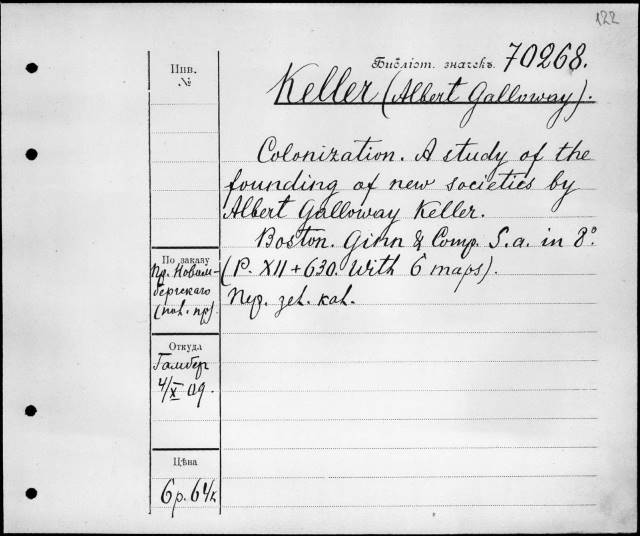 122
Библіот. значекъ. 70268.
Инв.
№
Keller (Albert Galloway).
Colonization. A study of the
founding of new societies by
Albert Galloway Keller.
Boston. Ginn & Comp. S. a. in 8º.
(P. XII + 630. With 6 maps).
По заказу
пр. Новом-
бергскаго
Откуда
Гамбер
4/X 09.
Цѣна
6 р. 64 к